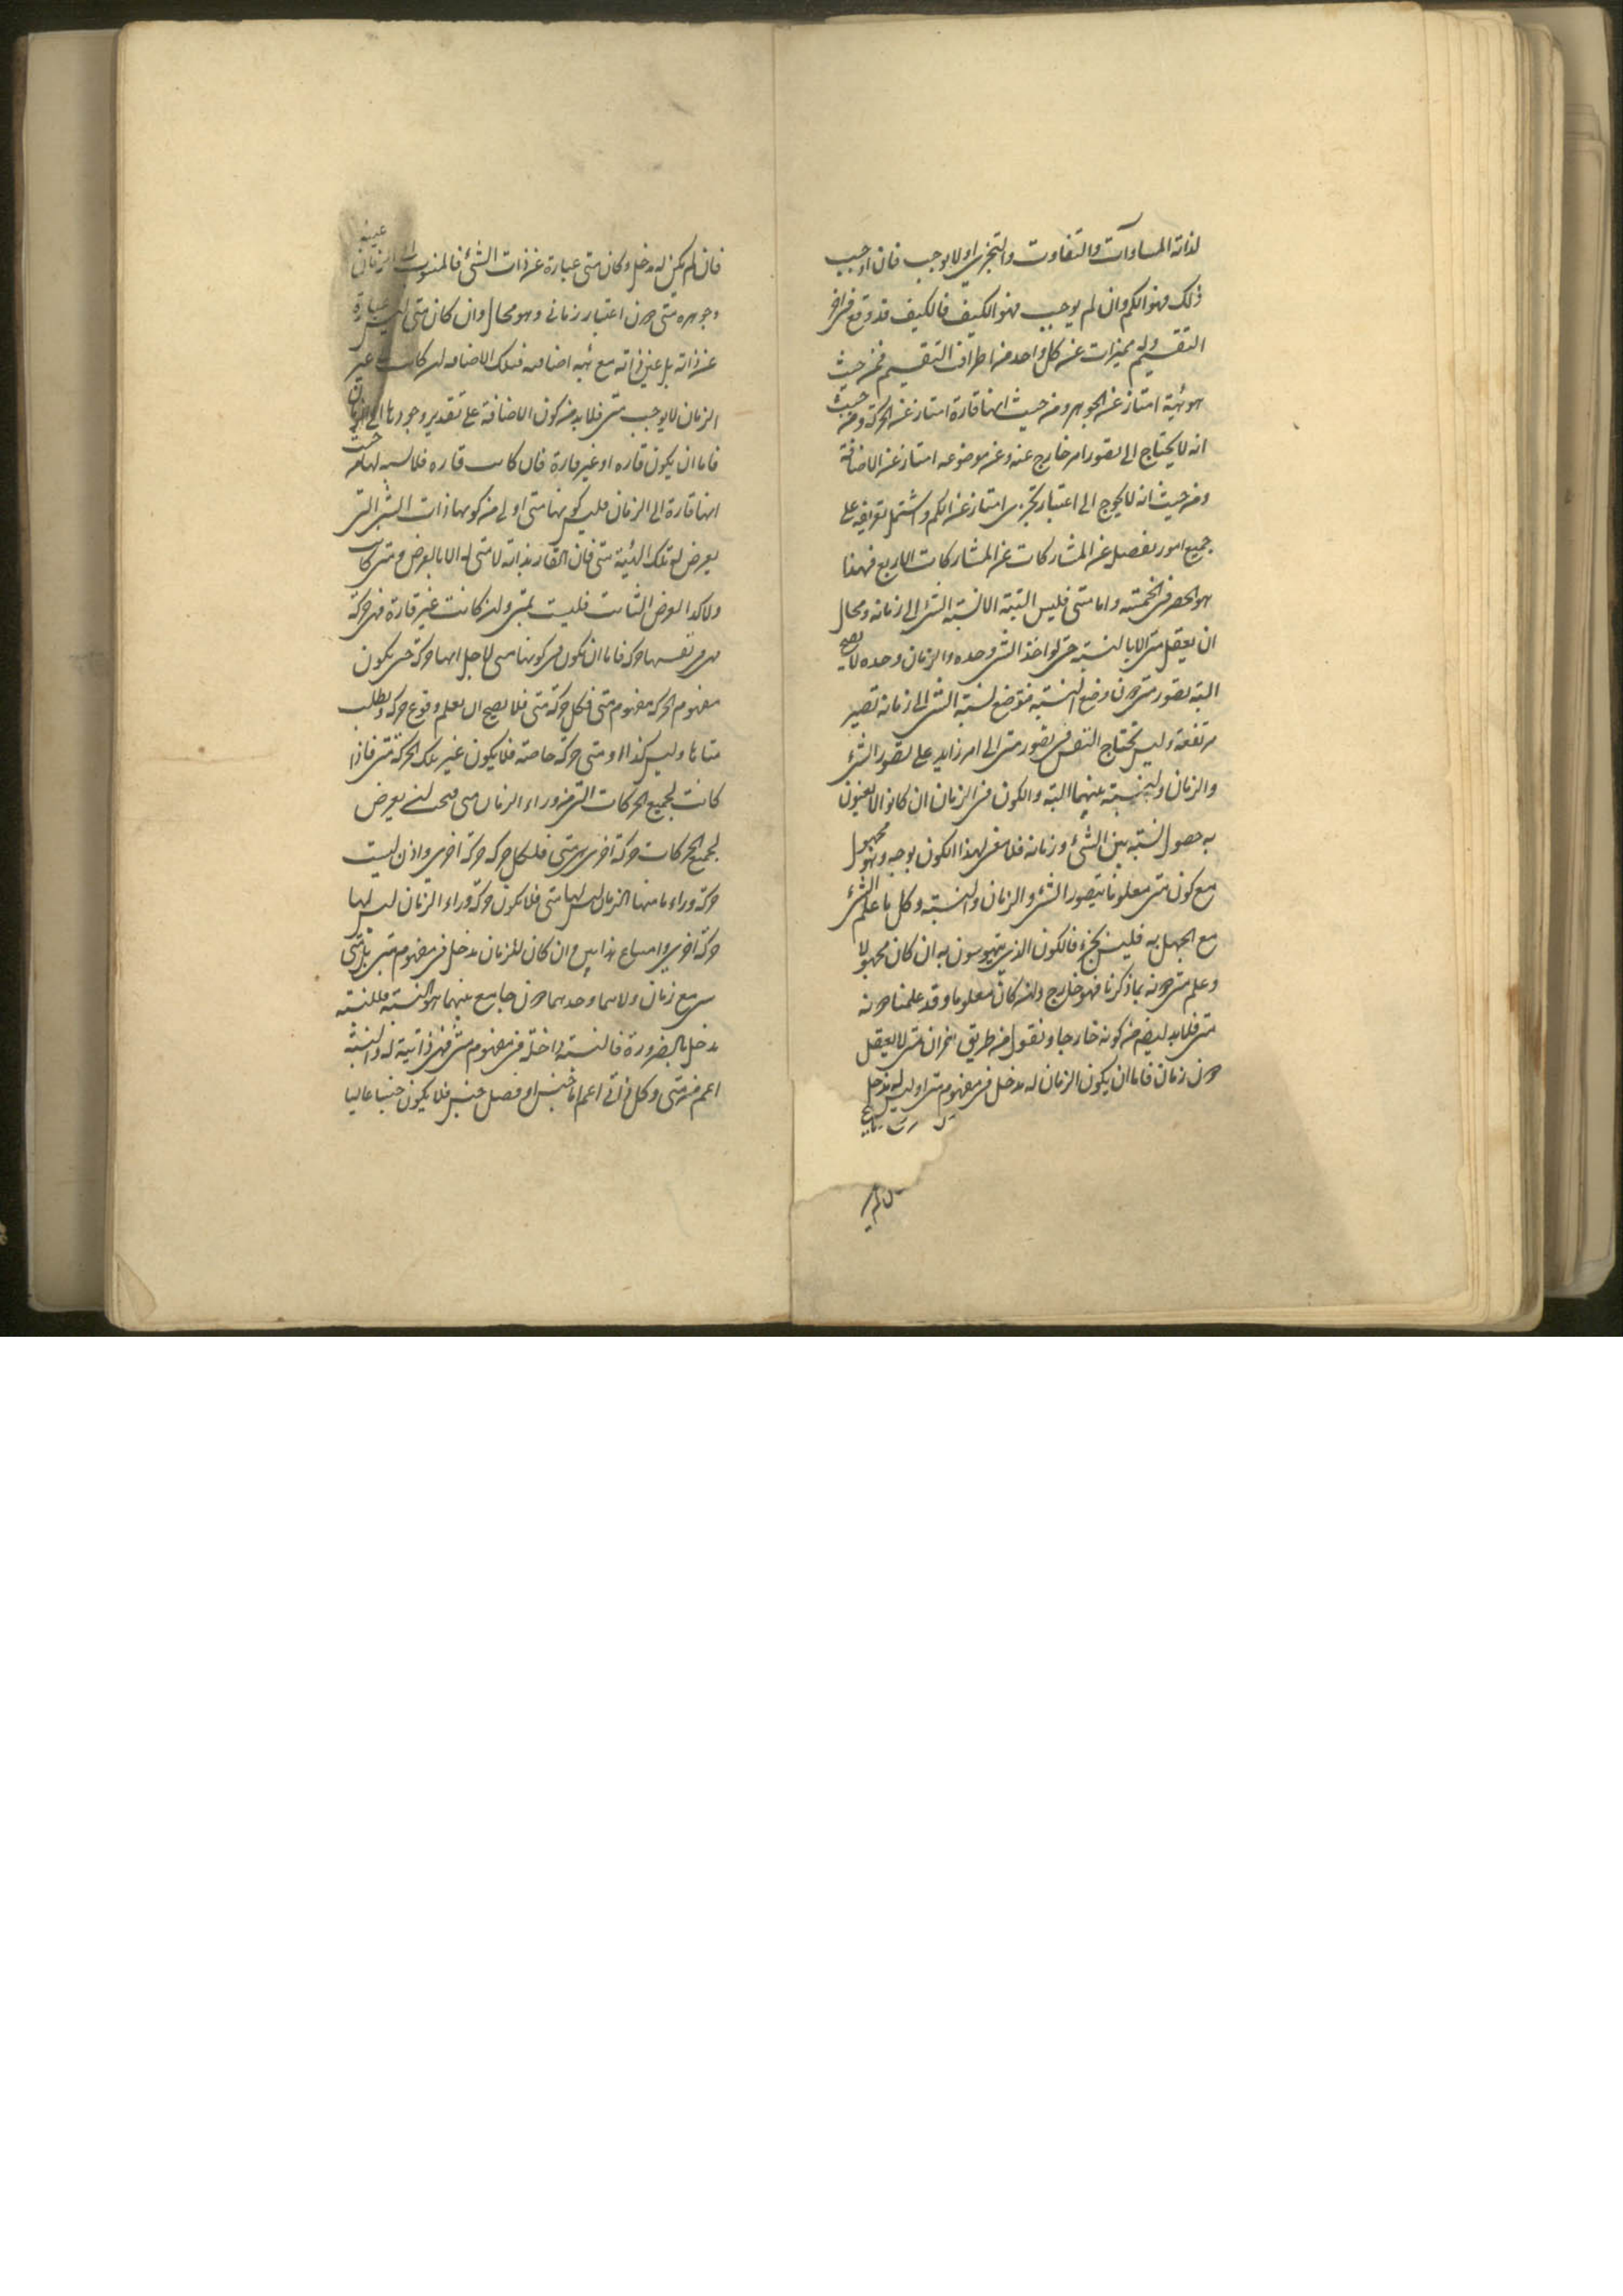 لذاته المساوات والتفاوت والتجزى او لا يوجب فان اوجب
ذلك فهو الكم وان لم يوجب فهو الكيف فالكيف قد وقع فى اخر
التقسيم وله مميزات عن كل واحد من اطراف التقسيم فمن حيث
هو هيئة امتاز عن الجوهر ومن حيث انها قارة امتاز عن الحركة ومن حيث
انه لا يحتاج الى تصور امر خارج عنه وعن موضوعه امتاز عن الاضافة
ومن حيث انه لا يحوج الى اعتبار تجزى امتاز عن الكم واشتمل تعريفه على
جميع امور يفصل عن المشاركات عن المشاركات الاربع فهذا
هو الحصر فى الخمسة واما متى فليس البتة الا نسبة الشى الى زمانه ومحال
ان يعقل متى الا بالنسبة حتى لو اخذ الشى وحده والزمان وحده لا يصح
البته تصور متى دون وضع النسبة فتوضع نسبة الشى الى زمانه تصير
مرتفعة وليس يحتاج النفس فى تصور متى الى امر زايد على تصور الشئ
والزمان والنسبة بينهما البته والكون فى الزمان ان كانوا لا يعنون
به حصول نسبة بين الشئ وزمانه فلا معنى لهذا الكون بوجه وهو مجهول
مع كون متى معلوما بتصور الشئ والزمان والنسبة وكل ما علم الشئ
مع الجهل به فليس بجزء فالكون الذى يتهوسون به ان كان مجهولا
وعلم متى دونه بما ذكرنا فهو خارج وان كان معلوما وقد علمنا دونه
متى فلا بد ايضا من كونه خارجا ونقول من طريق اخر ان متى لا يعقل
دون زمان فاما ان يكون الزمان له مدخل فى مفهوم متى او ليس له مدخل
فان لم يكن له مدخل وكان متى عبارة عن ذات الشئ فالمنسوب الى الزمان عينه
وجوهره متى دون اعتبار زمانى وهو محال وان كان متى ليس عبارة
عن ذاته بل عن ذاته مع هيئة اضافية فتلك الاضافة ان كانت غير
الزمان لا يوجب متى فلا بد من كون الاضافة على تقدير وجودها الى الزمان
فاما ان يكون قاره او غير قارة فان كانت قاره فلا نسبة لها من حيث
انها قارة الى الزمان فليس كونها متى اولى من كونها ذات الشى التى
يعرض له تلك الهيئة متى فان القار بذاته لا متى له الا بالعرض ومتى كانت
العرض الثابت فليست بمتى وان كانت غير قارة فهى حركة
فهى نفسها حركة فاما ان تكون فى كونها متى لاجل انها حركة حتى يكون
مفهوم الحركة مفهوم متى فكل حركة متى فلا يصح ان يعلم وقوع حركة ويطلب
متاها وليس كذا او متى حركة خاصة فلا يكون غير تلك الحركة متى فاذا
كانت لجميع الحركات التى من وراء الزمان متى فيجب ان يعرض
لجميع الحركات حركة اخرى هى متى فلكل حركة حركة اخرى واذن ليست
حركة وراء ما منها الزمان ليس لها متى فلا تكون حركة وراء الزمان ليس لها
حركة اخرى وامتناع هذا بين وان كان للزمان مدخل فى مفهوم متى
مع زمان جامع بينهما هو النسبة فللنسبة
مدخل بالضرورة فالنسبة داخلة فى مفهوم متى فهى ذاتية له والنسبة
اعم من متى وكل ذاتى اعم اما جنس او فصل جنس فلا يكون جنسا عاليا